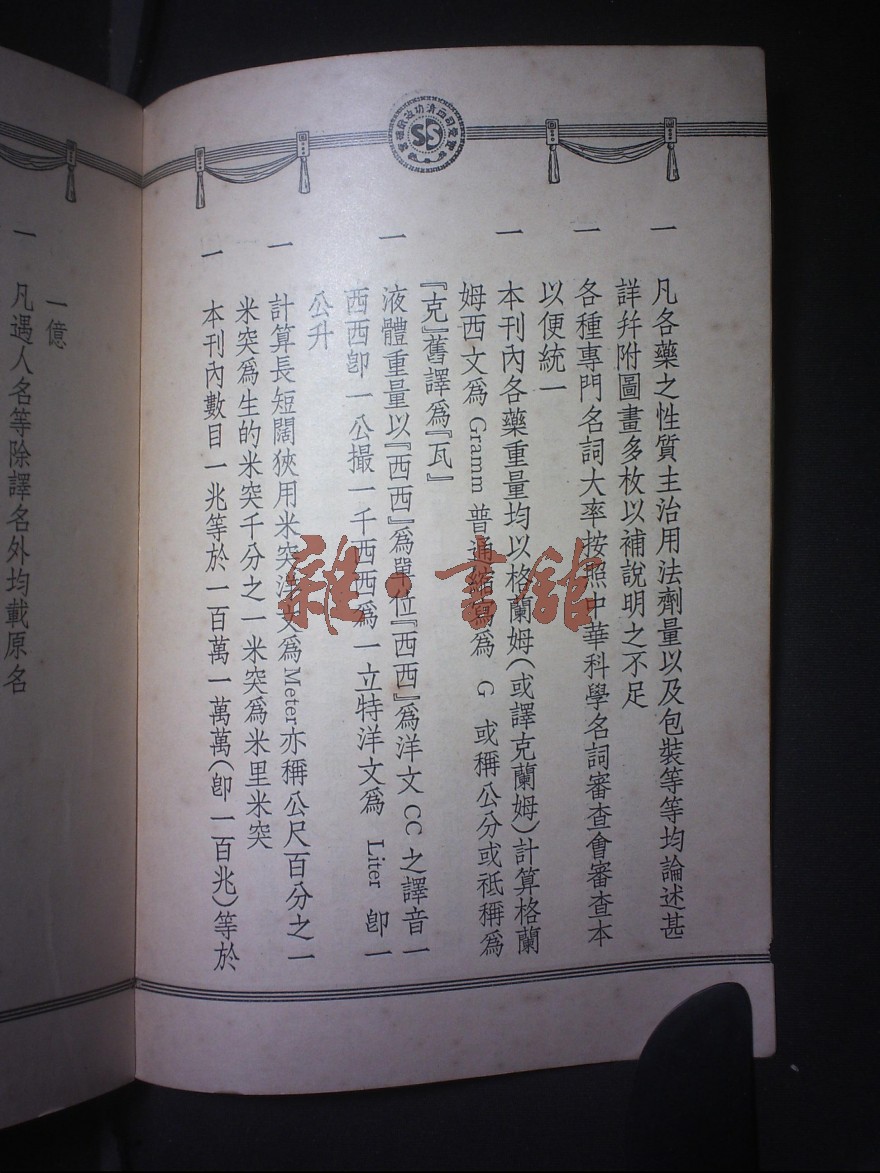 一 凡各藥之性質主治用法劑量以及包裝等等均論述甚
詳幷附圖畫多枚以補說明之不足
一 各種專門名詞大率按照中華科學名詞審查會審查本
以便統一
一 本刊內各藥重量均以格蘭姆(或譯克蘭姆)計算格蘭
姆西文爲 Gramm 普通縮寫爲 G 或稱公分或祗稱爲
『克』舊譯爲『瓦』
一 液體重量以『西西』爲單位『西西』爲洋文 CC 之譯音一
西西卽一公撮一千西西爲一立特洋文爲 Liter 卽一
公升
一 計算長短闊狹用米突洋文爲Meter亦稱公尺百分之一
米突爲生的米突千分之一米突爲米里米突
一 本刊內數目一兆等於一百萬一萬萬(卽一百兆)等於
一億
一 凡遇人名等除譯名外均載原名
雜·書館